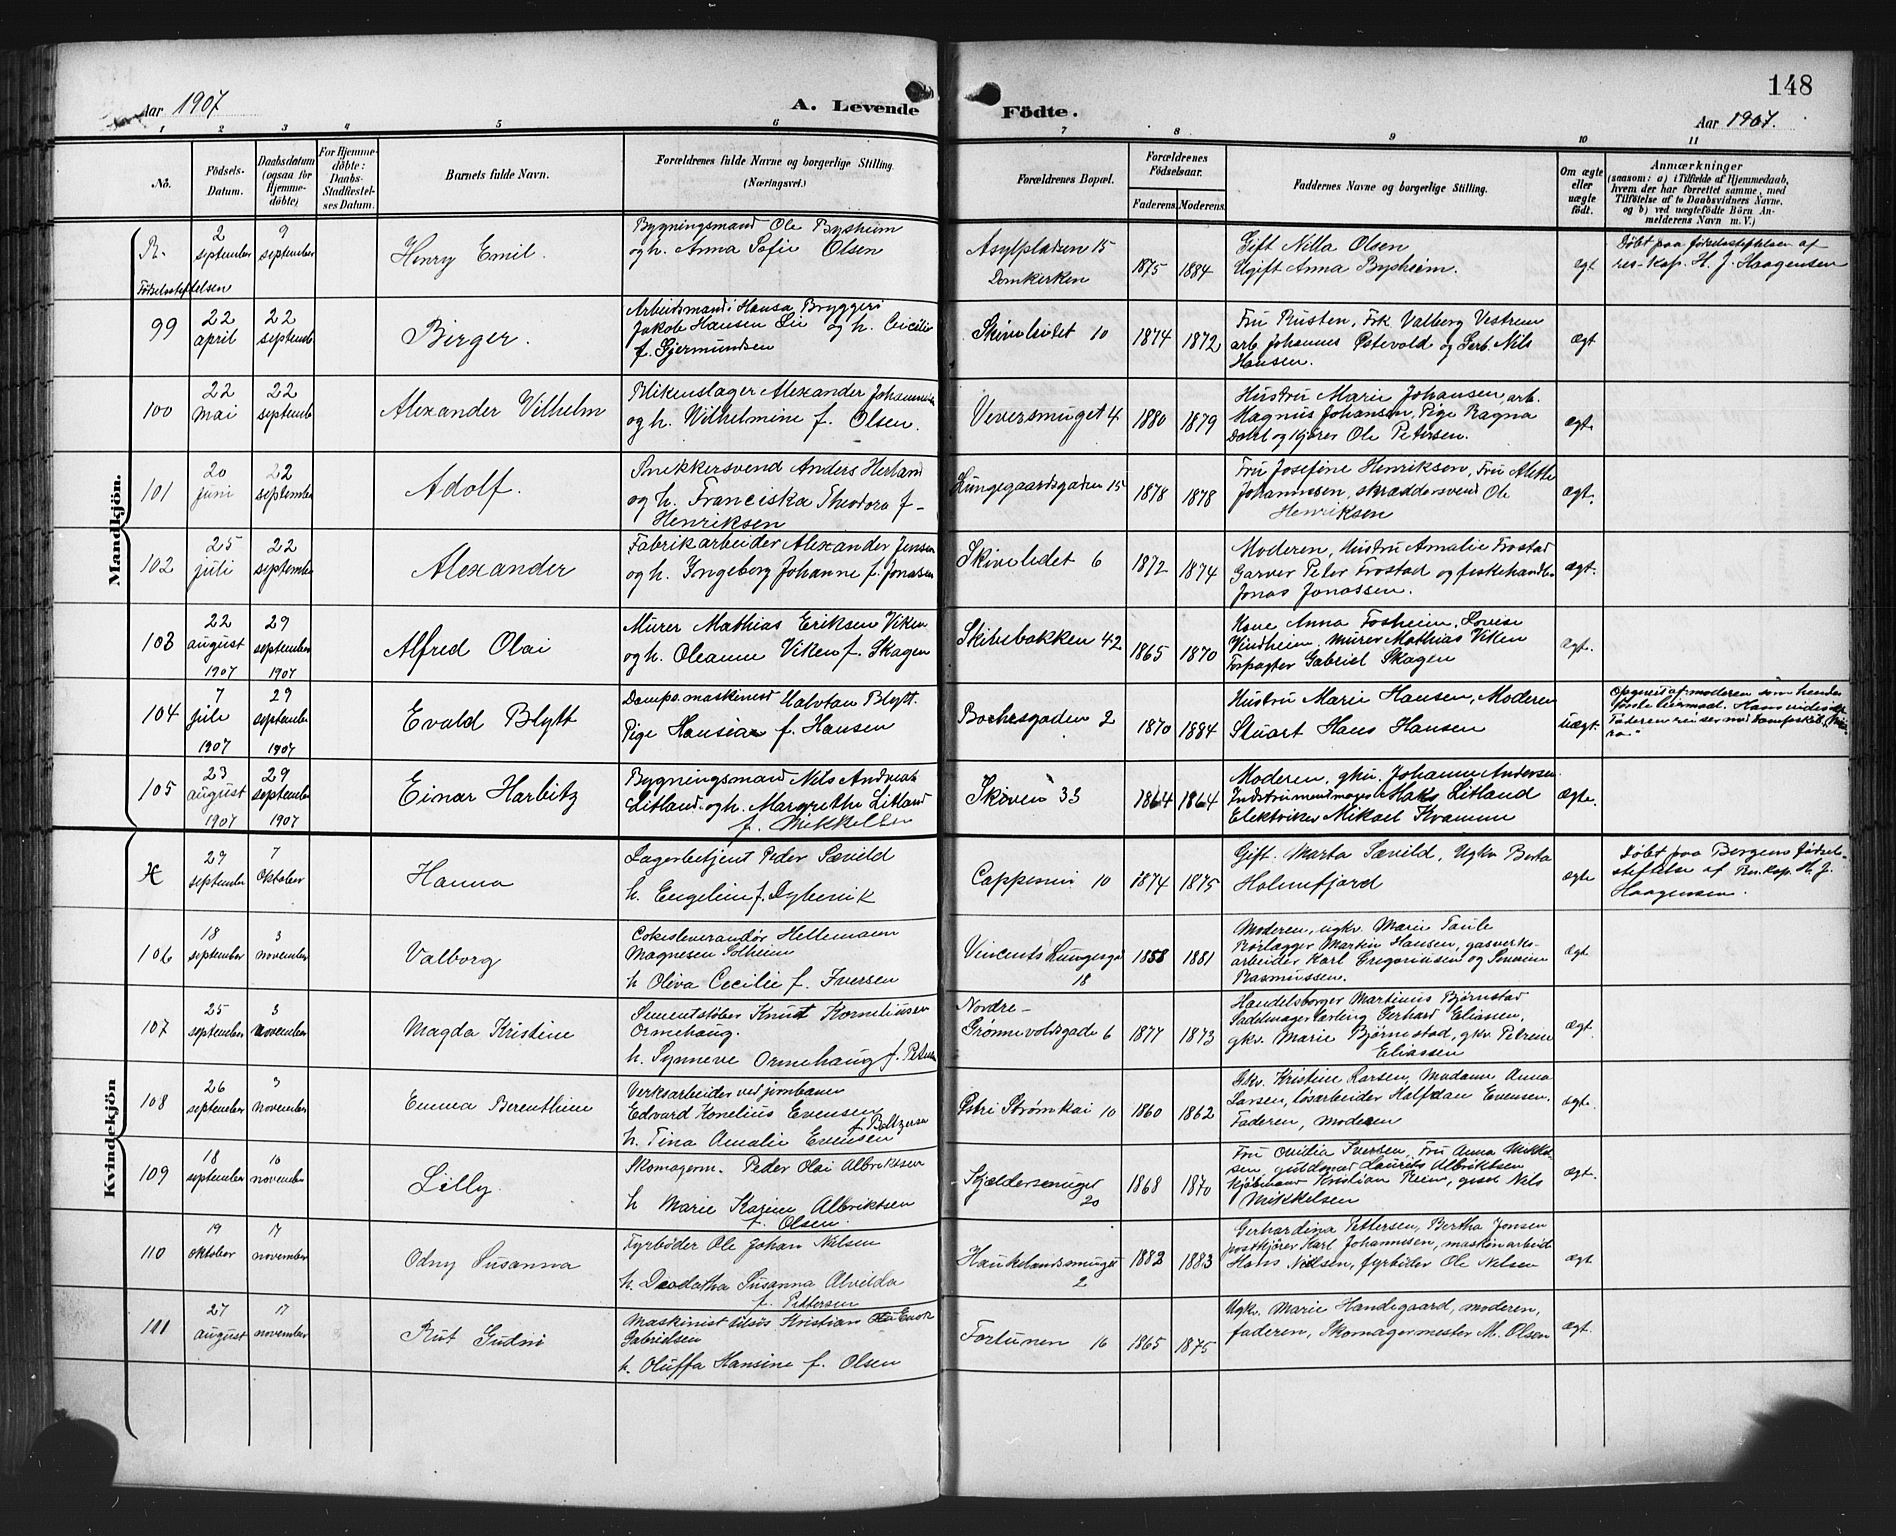 148
Aar 1907
A. Levende Födte.
Aar 1907.
1 2 3 4 5 6 7 8 9 10 11
No.
Födsels-
Datum.
Daabsdatum
(ogsaa for
Hjemme-
döbte)
For Hjemme-
döbte:
Daabs-
Stadfæstel-
ses Datum.
Barnets fulde Navn.
Forældrenes fulde Navne og borgerlige Stilling.
(Næringsvei.)
Forældrenes Bopæl.
Forældrenes
Födselsaar.
Faderens Moderens.
Faddernes Navne og borgerlige Stilling.
Om ægte
eller
uægte
födt.
Anmærkninger
(saasom: a) i Tilfælde af Hjemmedaab,
hvem der har forrettet samme, med
Tilföielse af to Daabsvidners Navne,
og b) ved uægtefödte Börn An-
melderens Navn m. V.)
Mandkjön.
R.
Fødselsstiftelsen
2
september
9
september
Henry Emil.
Bygningsmand Ole Bysheim
og h. Anna Sofie Olsen
Asylpladsen 15
Domkirken
1875 1884
Gift Nilla Olsen
Ugift Anna Bysheim.
ægt
Døbt paa fødselsstiftelsen af
res. kap. H. J. Haagensen
99
22
april
22
septemb
Birger.
Arbeidsmand i Hansa Bryggeri
Jakob Hansen Lie og h. Cecilie
f. Gjermundsen
Skiveledet 10
1874 1872
Fru Rusten, Frk Valborg Vestrem
arb. Johannes Petevold og Serb. Nils
Hansen.
ægt
100
22
mai
22
septemb
Alexander Vilhelm
Blikenslager Alexander Johannesen
og h. Wilhelmine f. Olsen.
Veversmuget 4
1880 1879
Hustru Marie Johansen, arb.
Magnus Johansen, Pige Ragna
Dahl og kjører Ole Petersen.
ægt.
101
20
juni
22
september
Adolf.
Snekkersvend Anders Herland
og h. Franciska Theodora f-
Henriksen
Lungegaardsgaden 15
1878 1878
Fru Josefine Henriksen, Fru Alette
Johannessen, skræddersvend Ole
Henriksen
ægt.
102
25
juli
22
september
Alexander
Fabrikarbeider Alexander Jensen
og h. Ingeborg Johanne f. Jonasen
Skiveledet 6
1872 1874
Moderen, Hustru Amalie Frostad
Garver Peter Frostad og fiskehandler
Jonas Jonassen.
ægt.
103
22
august
1907
29
september
1907
Alfred Olai
Murer Mathias Eriksen Viken
og h. Oleanne Viken f. Skagen
Skivebakken 42
1865 1870
Kone Anna Fosheim, Lovise
Vindheim, murer Mathias Viken
Forpagter Gabriel Skagen
ægt.
104
7
juli
1907
29
september
1907
Evald Blytt
Damps. maskinist Halvtan Blytt.
Pige Hansine f. Hansen
Bochesgaden 2
1870 1884
Hustru Marie Hansen, Moderen
Stuart Hans Hansen
uægt.
Opgivet af moderen som hendes
første leiermaal.
Faderen reiser med Dampskibet
105
23
august
1907
29
september
1907
Einar Harbitz
Bygningsmand Nils Andreas
Litland og h. Margrethe Litland
f. Mikkelsen
Skiven 33
1864 1864
Moderen, gku. Johanne Andersen
Indstrumentmager Hans Litland
Elektriker Mikael Kvamme
ægte.
Kvindekjön
29
september
7
Oktober
Hanna
Lagerbetjent Peder Sævild
h. Engeline f. Dybevik
Cappesmi 10
1874 1875
Gift. Marta Sævild, Ugkv Berta
Holmefjord
ægte
Døbt paa Bergens fødsel-
stiftelse af Res. kap. H. J.
Haagensen.
106
18
september
3
november
Valborg
Cokesleverandør Hellemann
Magnesen Solheim
h Oliva Cecilie f. Iversen
Vincents Lungesgd
18
1858 1881
Moderen, ugkv. Marie Taule
Rørlægger Martin Hansen, gasverks-
arbeider Karl Gregoriusen og Severin
Rasmussen.
ægt
107
25
september
3
november
Magda Kristine
Sementstøber Knut Korneliusen
Ormehaug.
h. Synneve Ormehaug f. Peters
Nordre-
Grønnevoldsgade 6
1877 1873
Handelsborger Martinus Bjørnstad
Sadelmagerlærling Gerhard Eliassen,
gkv. Marie Bjørnestad, gkv. Petrine
Eliassen
ægt.
108
26
september
3
november
Emma Berenthine
Verksarbeider ved jernbanen
Edvard Kornelius Evensen
f. Boltzersen
h. Tina Amalie Evensen
Østri Strømkai 10
1860 1862
Gkv. Kristine Larsen, Madame Anna
Larsen, løsarbeider Halfdan Evensen.
Faderen, moderen
ægte.
109
18
september
10
november
Lilly.
Skomagerm. Peder Olai Albriktsen
h Marie Karine Albriktsen
f. Olsen.
Skjeldersmuget
20
1868 1870
Fru Otilia Iversen, Fru Anna Mikkel-
sen, guldsmed Laurits Albriktsen
kjøbmand Kristian Reim, gesel Nils
Mikkelsen
ægt.
110
19
oktober
17
november
Odny Susanna
Fyrbøder Ole Johan Nilsen
h. Deodatha Susanna Alvilda
f. Pettersen
Haukelandsmuget
2
1882 1883
Gerhardina Pettersen, Bertha Jonsen
postkjører Karl Johannesen, maskinarbeid
Hans Nilsen, fyrbøder Ole Nilsen
ægt
111
27
august
17
november
Rut Gudni
Maskinist Kristian Enok
Gabrielsen
h. Oluffa Hansine f. Olsen
Fortunen 16
1865 1875
Ugkv. Marie Handegaard, moderen,
faderen, Skomagermester M. Olsen
ægt.